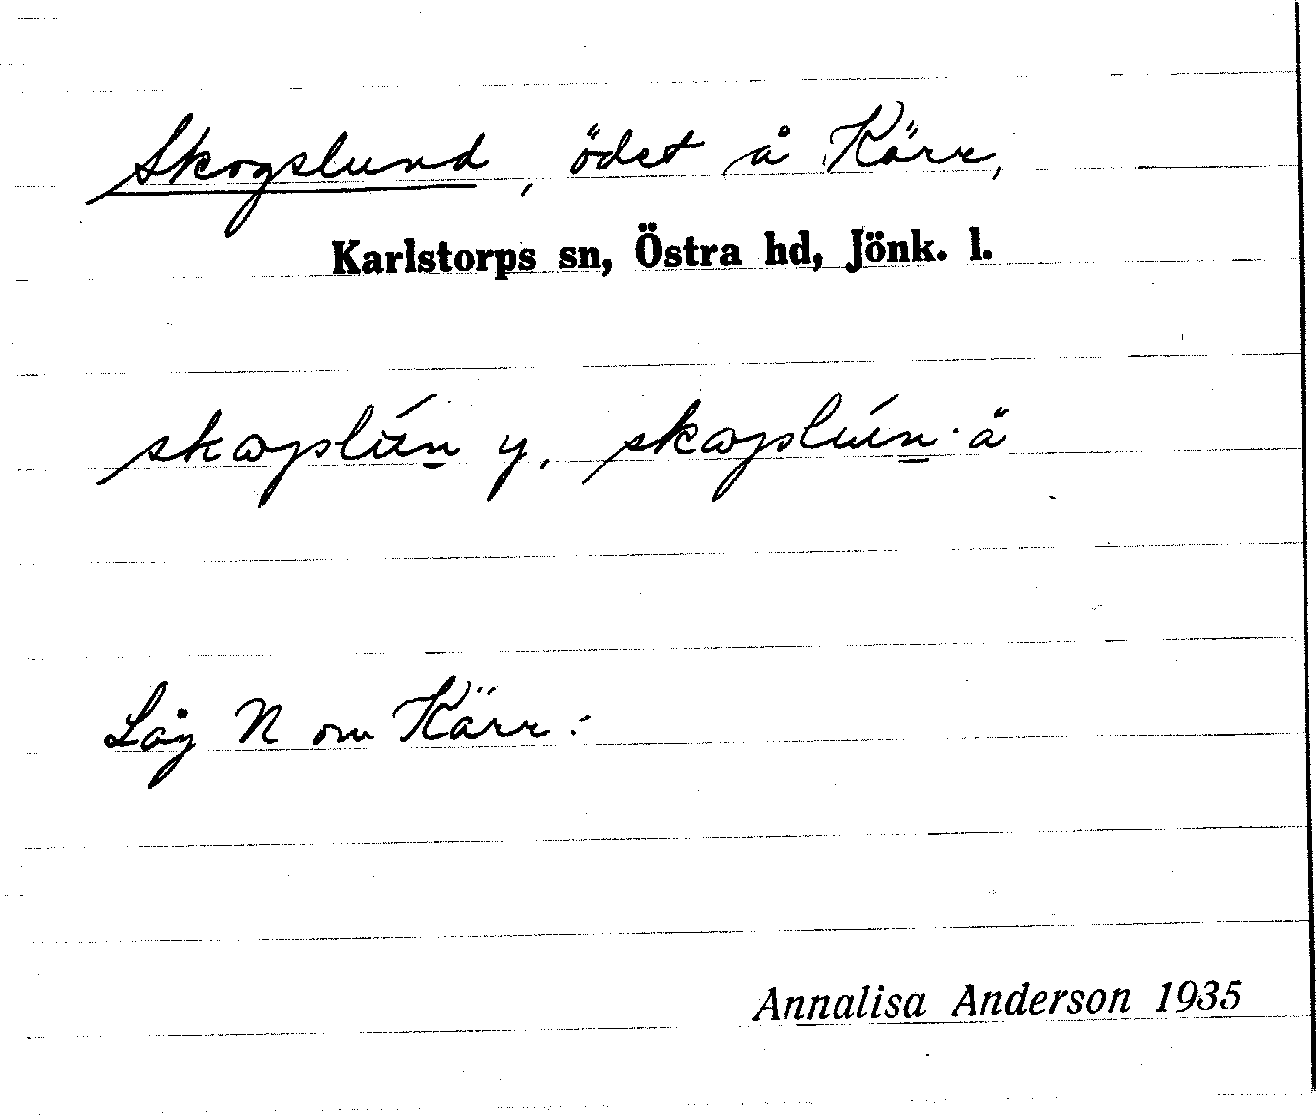 Skogslund, ödet å Kärr,
Karlstorps sn, Östra hd, Jönk. l.
skogslún y. skogslún· ä
Låg N om Kärr:-
Annalisa Anderson 1935